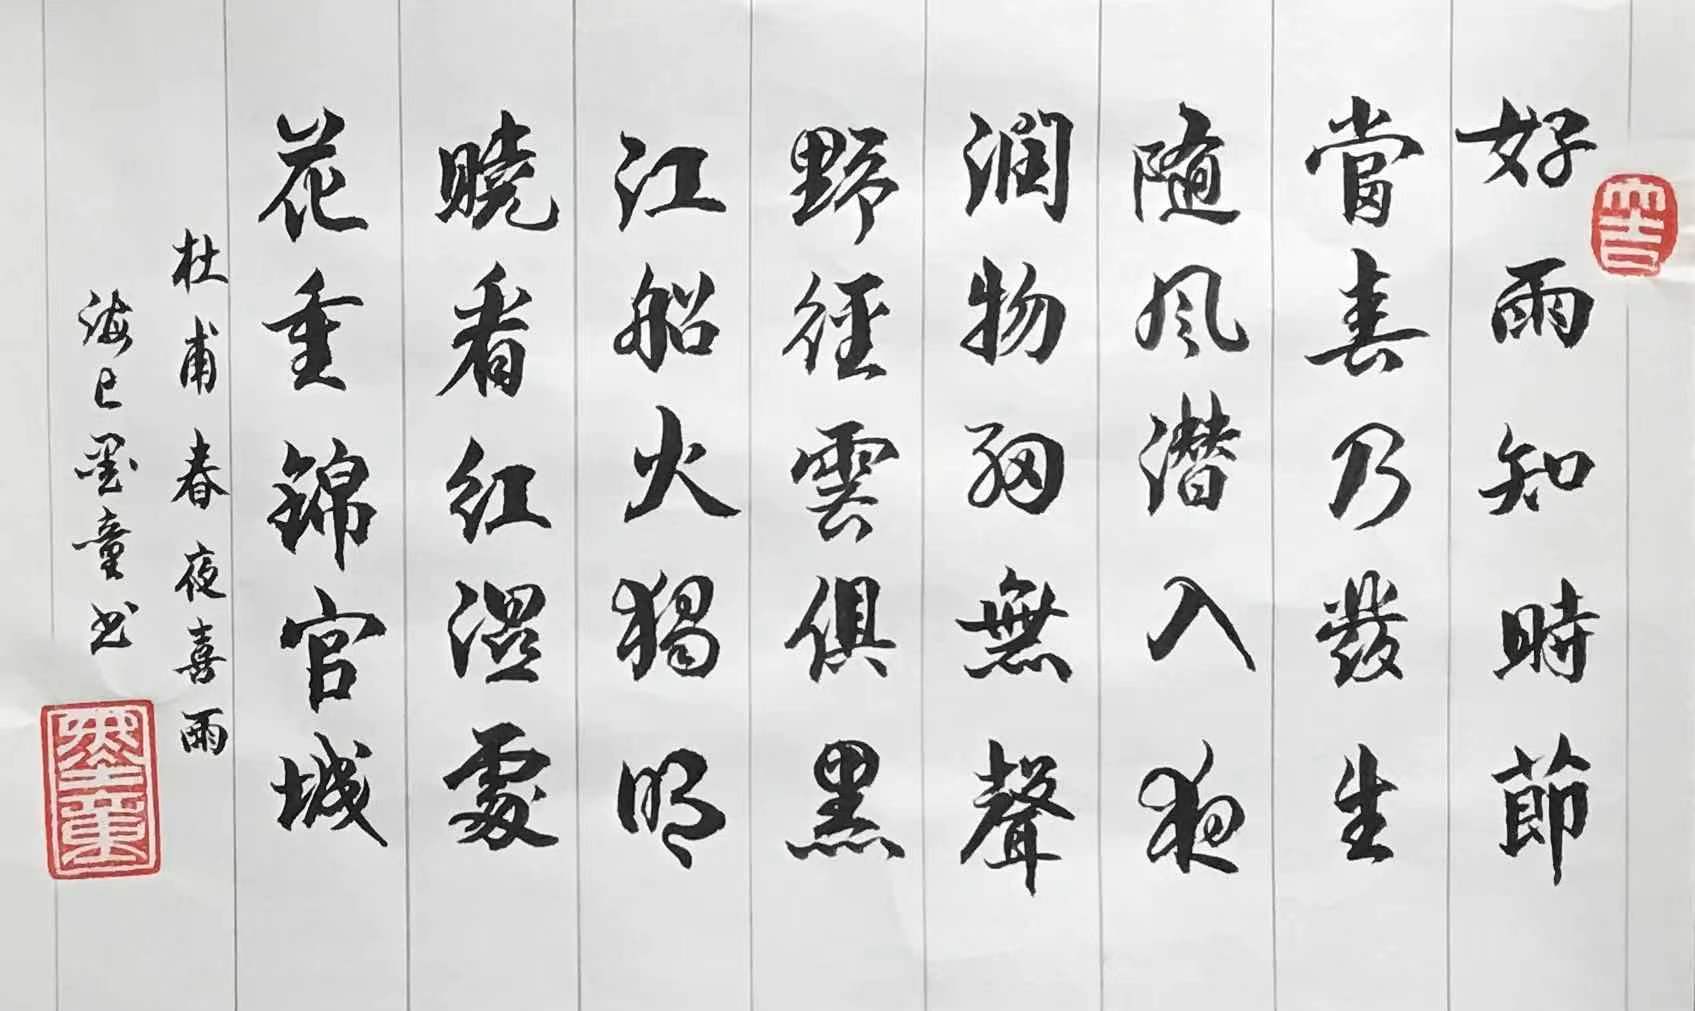 好雨知時節
當春乃發生
隨風潜入夜
潤物細無聲
野徑雲俱黑
江船火獨明
曉看紅濕處
花重錦官城
杜甫春夜喜雨
海墨童书
墨童